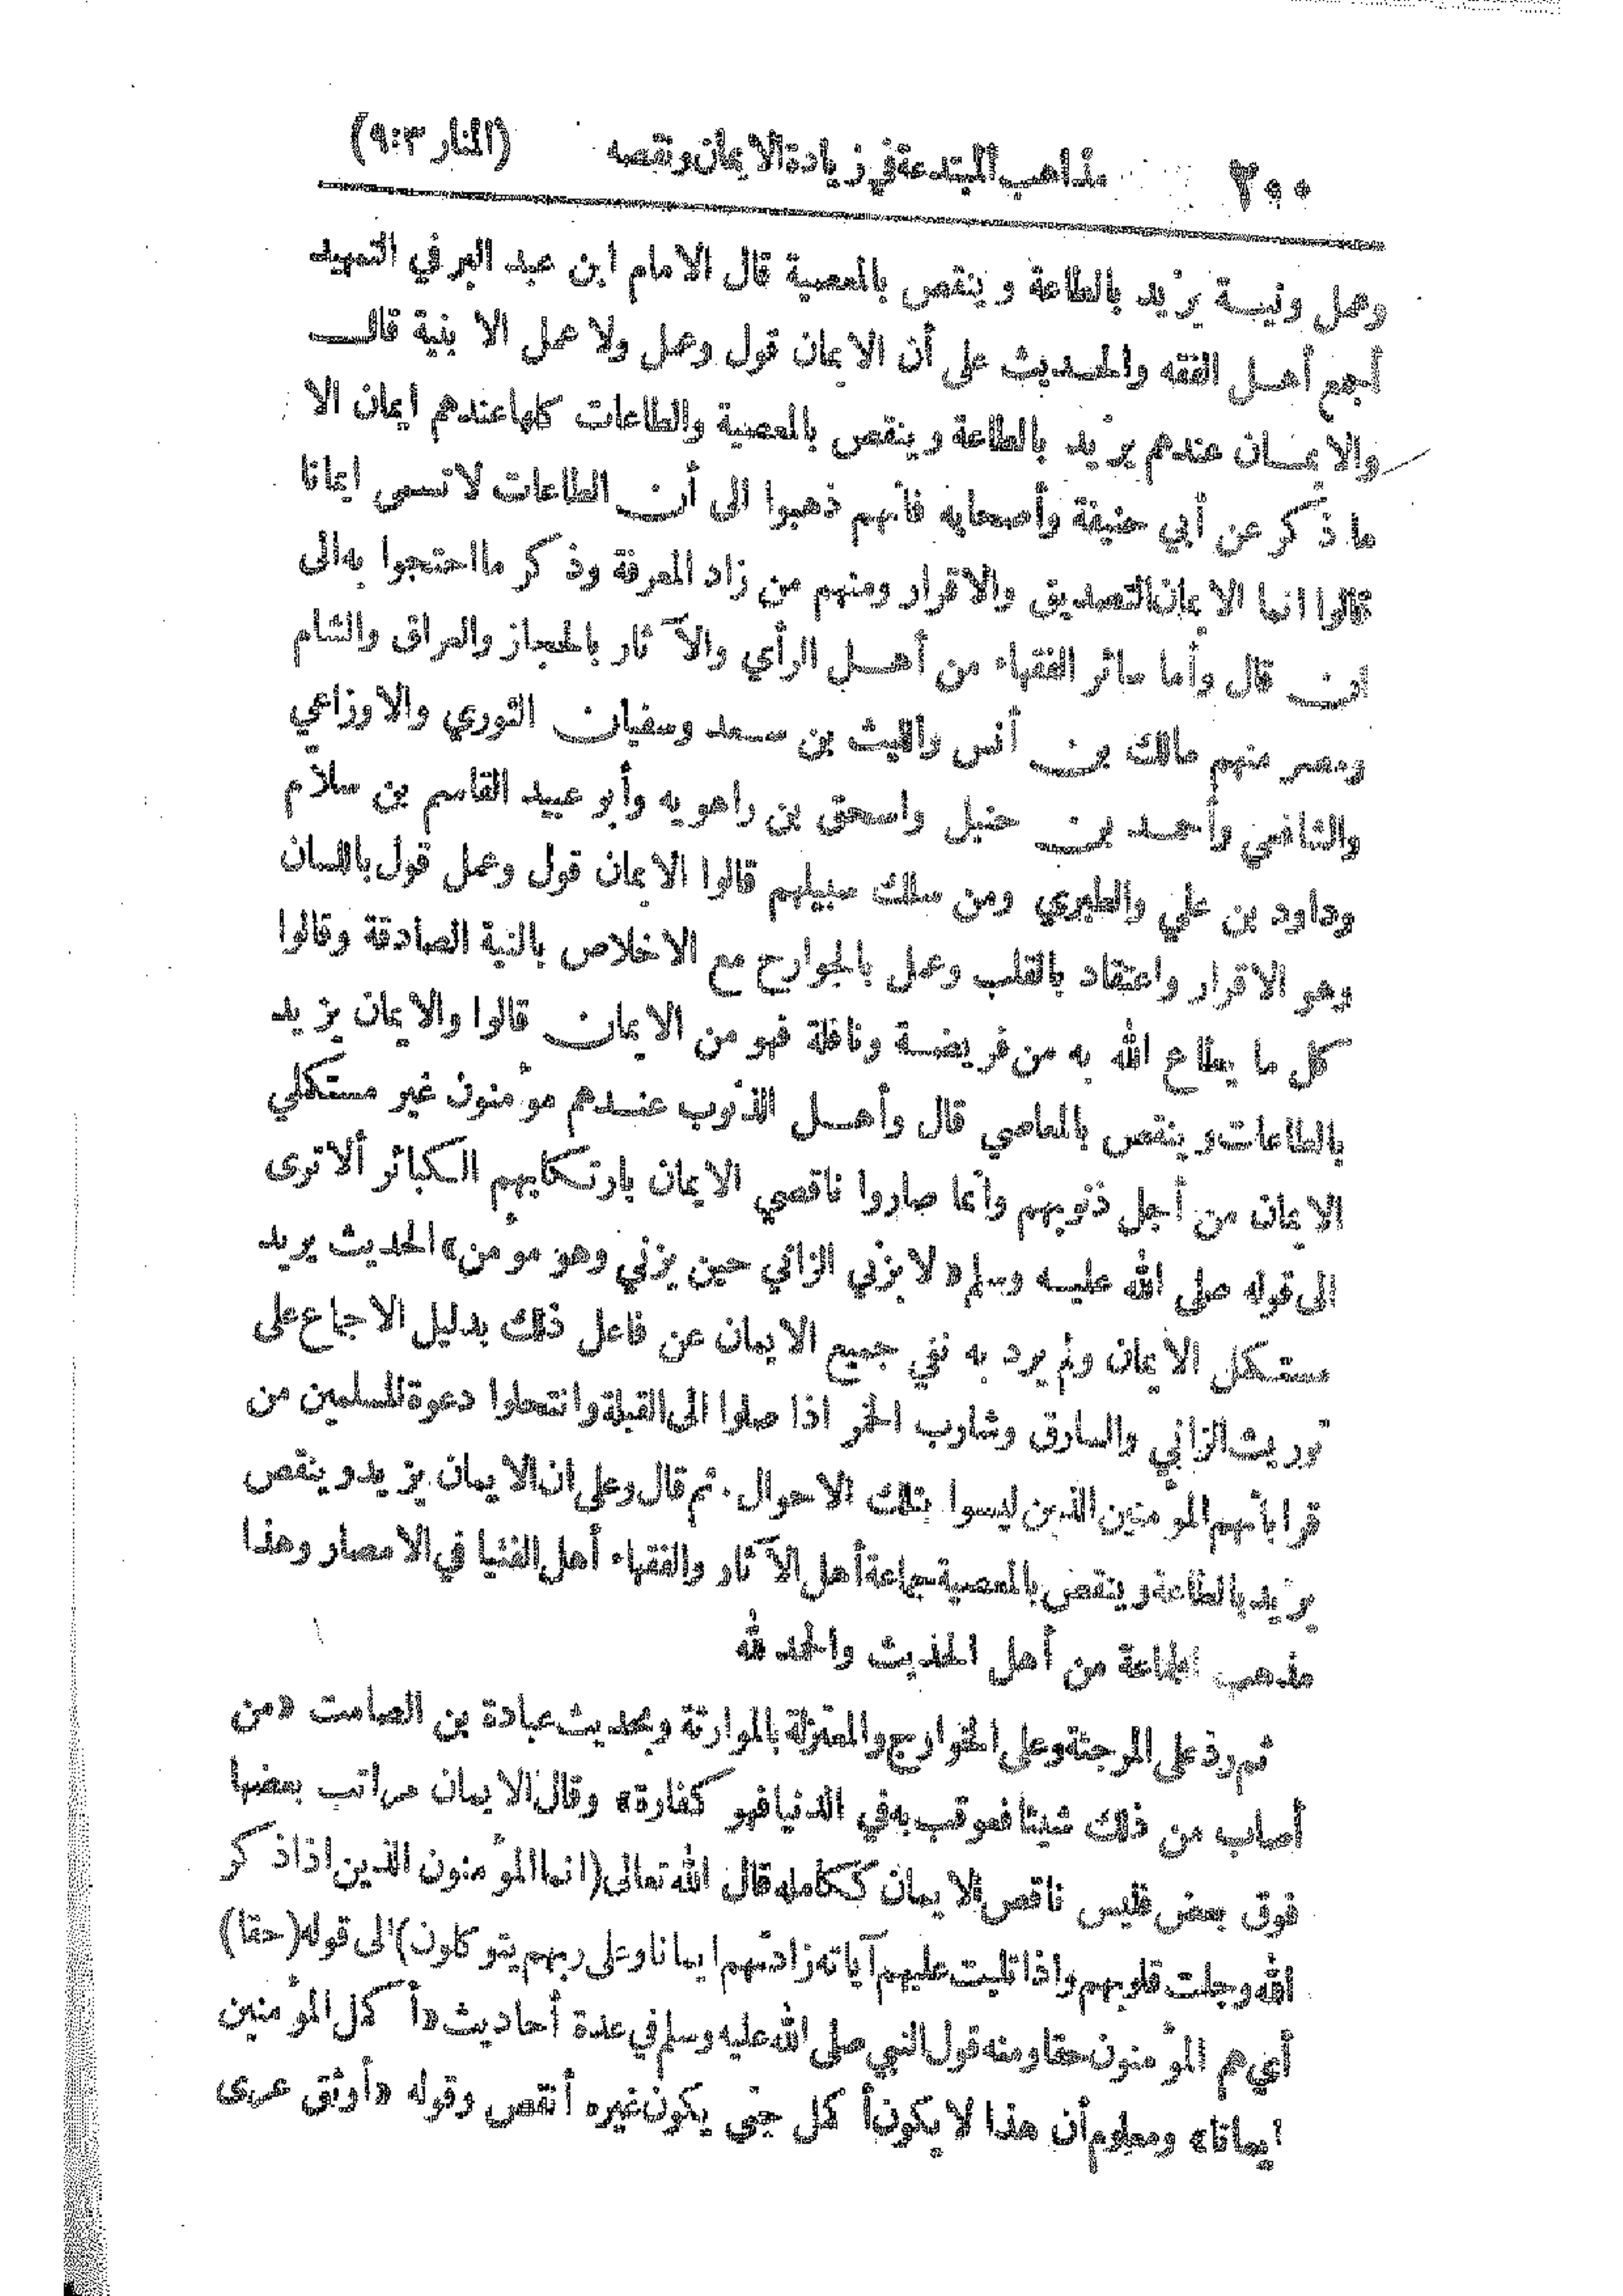 ٢٠٠ مذاهب المبتدعة في زيادة الايمان ونقصه (المنار ٣:٩)
وعمل ونيـة يزيد بالطاعة وينقص بالمعصية قال الامام ابن عبد البر في التمهيد
أجمع أهـل الفقه والحـديث على أن الايمان قول وعمل ولا عمل الا بنية قالـ
والايمـان عندهم يزيد بالطاعة وينقص بالمعصية والطاعات كلها عندهم ايمان الا
ما ذكر عن أبي حنيفة وأصحابه فانهم ذهبوا الى أن الطاعات لا تسمى ايمانا
قالوا انما الايمان التصديق والاقرار ومنهم من زاد المعرفة وذكر ما احتجوا به الى
ان قال وأما سائر الفقهاء من أهـل الرأي والآثار بالحجاز والعراق والشام
ومصر منهم مالك بن أنس والليث بن سـعد وسفيان الثوري والاوزاعي
والشافعي وأحمـد بن حنبل واسحق بن راهويه وأبو عبيد القاسم بن سلّام
وداود بن علي والطبري ومن سلك سبيلهم قالوا الايمان قول وعمل قول باللسان
وهو الاقرار واعتقاد بالقلب وعمل بالجوارح مع الاخلاص بالنية الصادقة وقالوا
كل ما يطاع الله به من فريضـة ونافلة فهو من الايمان قالوا والايمان يزيد
بالطاعات وينقص بالمعاصي قال وأهـل الذنوب عنـدهم مؤمنون غير مستكملي
الايمان من أجل ذنوبهم وانما صاروا ناقصي الايمان بارتكابهم الكبائر ألا ترى
الى قوله صلى الله عليـه وسلم «لا يزني الزاني حين يزني وهو مؤمن» الحديث يريد
مستكمل الايمان ولم يرد به نفي جميع الايمان عن فاعل ذلك بدليل الاجماع على
توريث الزاني والسارق وشارب الخمر اذا صلوا الى القبلة وانتحلوا دعوة المسلمين من
قراباتهم المؤمنين الذين ليسوا بتلك الاحوال. ثم قال وعلى ان الايمان يزيد وينقص
يزيد بالطاعة وينقص بالمعصية جماعة أهل الآثار والفقهاء أهل الفتيا في الامصار وهذا
مذهب الجماعة من أهل الحديث والحمد لله
ثم رد على المرجئة وعلى الخوارج والمعتزلة بالموارثة وبحديث عبادة بن الصامت «من
أصاب من ذلك شيئا فعوقب به في الدنيا فهو كفارة» وقال الايمان مراتب بعضها
فوق بعض فليس ناقص الايمان ككامله قال الله تعالى (انما المؤمنون الذين اذا ذكر
الله وجلت قلوبهم واذا تليت عليهم آياته زادتهم ايمانا وعلى ربهم يتوكلون) الى قوله (حقا)
أي هم المؤمنون حقا ومنه قول النبي صلى الله عليه وسلم في عدة أحاديث «أكمل المؤمنين
ايمانا» ومعلوم أن هذا لا يكون أكمل حتى يكون غيره أنقص وقوله «أوثق عرى